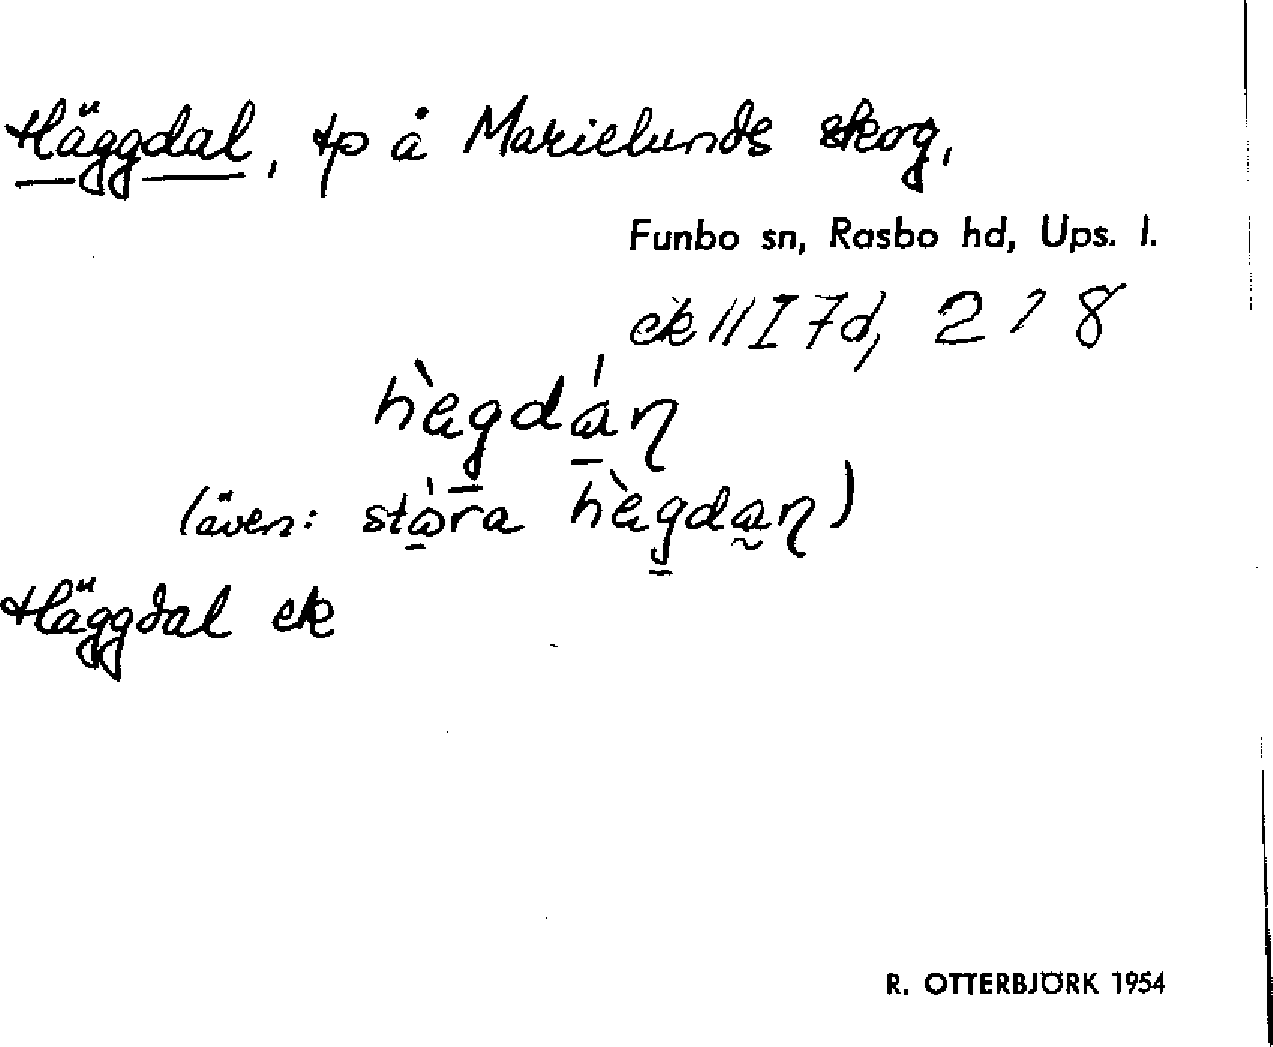 Häggdal, tp å Marielunds skog,
Funbo sn, Rasbo hd, Ups. l.
ek 11I7d, 2 7 8
hàgdáɳ
(även: stòra hàgdaɳ)
Häggdal ek
R. OTTERBJÖRK 1954